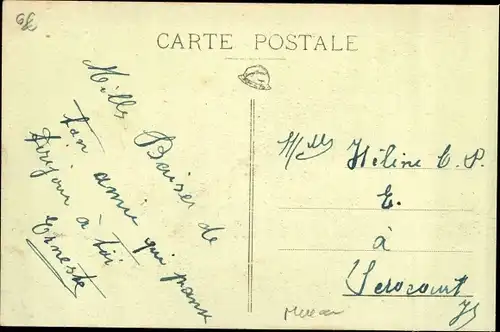 CARTE POSTALE
Mills Baiser de
ton amie qui pense
toujour à toi
Ernest
Mlle Hélène C. P.
E.
à
Serocourt